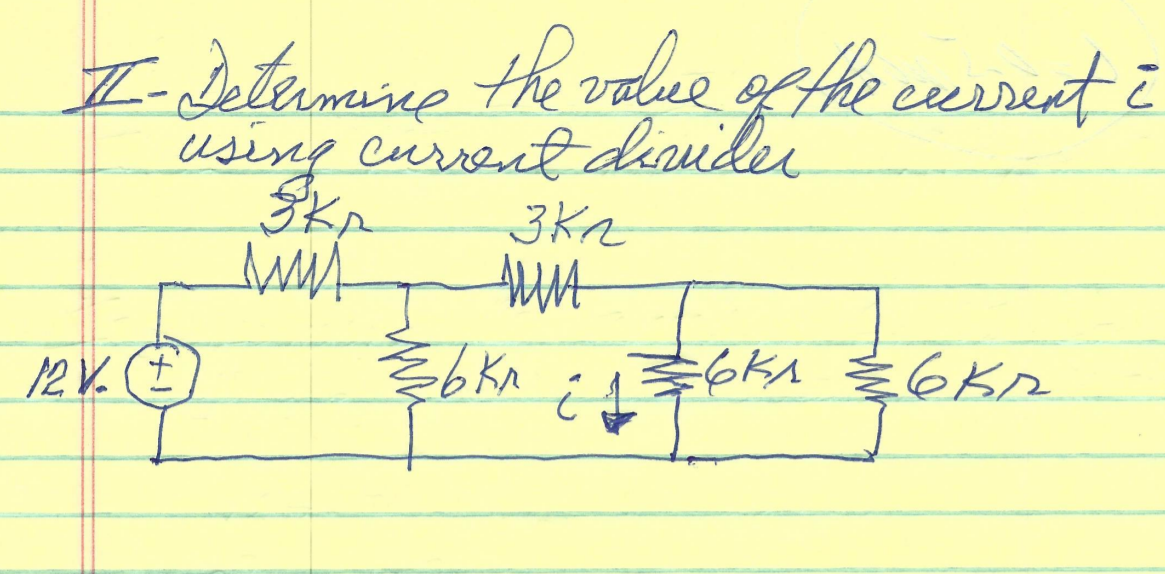 II- Determine the value of the current i
using current divider
3KΩ 3KΩ
12V. + - 6KΩ i 6KΩ 6KΩ